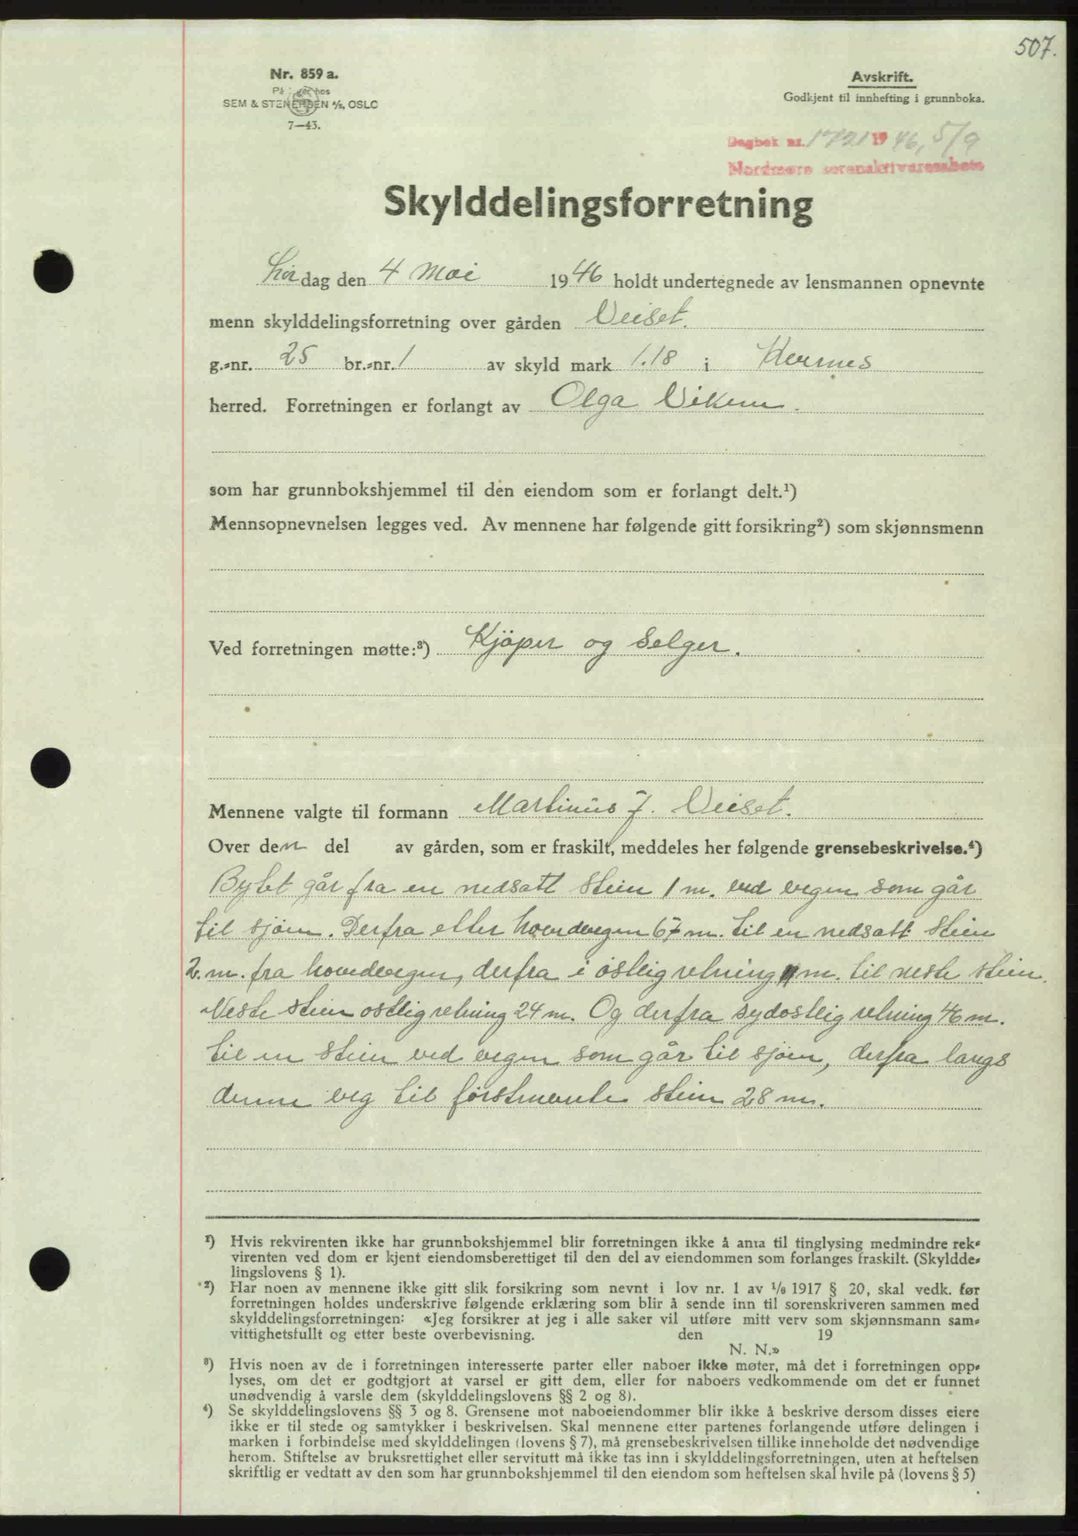 507.
Nr. 859 a.
SEM & STENERSEN A/S, OSLO
7—43.
Avskrift.
Godkjent til innhefting i grunnboka.
Dagbok nr. 1721 1946, 5/9
Nordmøre sorenskriverembete
Skylddelingsforretning
Lördag den 4 Mai 1946 holdt undertegnede av lensmannen opnevnte
menn skylddelingsforretning over gården Veiset.
g.-nr. 25 br.-nr. 1 av skyld mark 1.18 i
herred. Forretningen er forlangt av Olga Viken.
som har grunnbokshjemmel til den eiendom som er forlangt delt.¹)
Mennsopnevnelsen legges ved. Av mennene har følgende gitt forsikring²) som skjønnsmenn
Ved forretningen møtte:³) Kjöper og Selger.
Mennene valgte til formann Martinus J. Veiset.
Over den del av gården, som er fraskilt, meddeles her følgende grensebeskrivelse.⁴)
Bytet går fra en nedsatt stein 1 m. ved vegen som går
til sjöen. Derfra etter hovedvegen 67 m. til en nedsatt stein
2. m. fra hovedvegen, derfra i östlig retning m. til neste stein.
Neste stein ostlig retning 24 m. Og derfra sydostlig retning 46 m.
til en stein ved vegen som går til sjöen, derfra langs
denne veg til förstnevnte stein 28 m.
¹) Hvis rekvirenten ikke har grunnbokshjemmel blir forretningen ikke å anta til tinglysing medmindre rek-
virenten ved dom er kjent eiendomsberettiget til den del av eiendommen som forlanges fraskilt. (Skyldde-
lingslovens § 1).
²) Har noen av mennene ikke gitt slik forsikring som nevnt i lov nr. 1 av 1/6 1917 § 20, skal vedk. før
forretningen holdes underskrive følgende erklæring som blir å sende inn til sorenskriveren sammen med
skylddelingsforretningen: «Jeg forsikrer at jeg i alle saker vil utføre mitt verv som skjønnsmann sam-
vittighetsfullt og etter beste overbevisning. den 19
N. N.»
³) Hvis noen av de i forretningen interesserte parter eller naboer ikke møter, må det i forretningen opp-
lyses, om det er godtgjort at varsel er gitt dem, eller for naboers vedkommende om det er funnet
unødvendig å varsle dem (skylddelingslovens §§ 2 og 8).
⁴) Se skylddelingslovens §§ 3 og 8. Grensene mot naboeiendommer blir ikke å beskrive dersom disses eiere
ikke er til stede og samtykker i beskrivelsen. Skal mennene etter partenes forlangende utføre delingen i
marken i forbindelse med skylddelingen (lovens § 7), må grensebeskrivelsen tillike inneholde det nødvendige
herom. Stiftelse av bruksrettighet eller servitutt må ikke tas inn i skylddelingsforretningen, uten at heftelsen
skriftlig er vedtatt av den som har grunnbokshjemmel til den eiendom som heftelsen skal hvile på (lovens § 5)